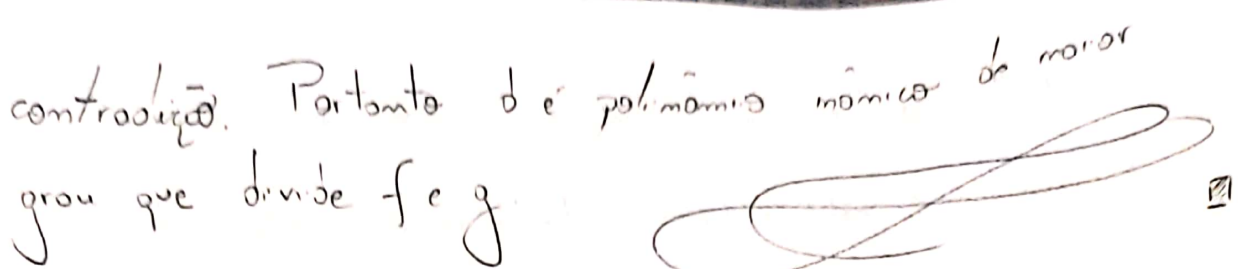 contradição. Portanto d é polinômio mônico de maior
grau que divide f e g.